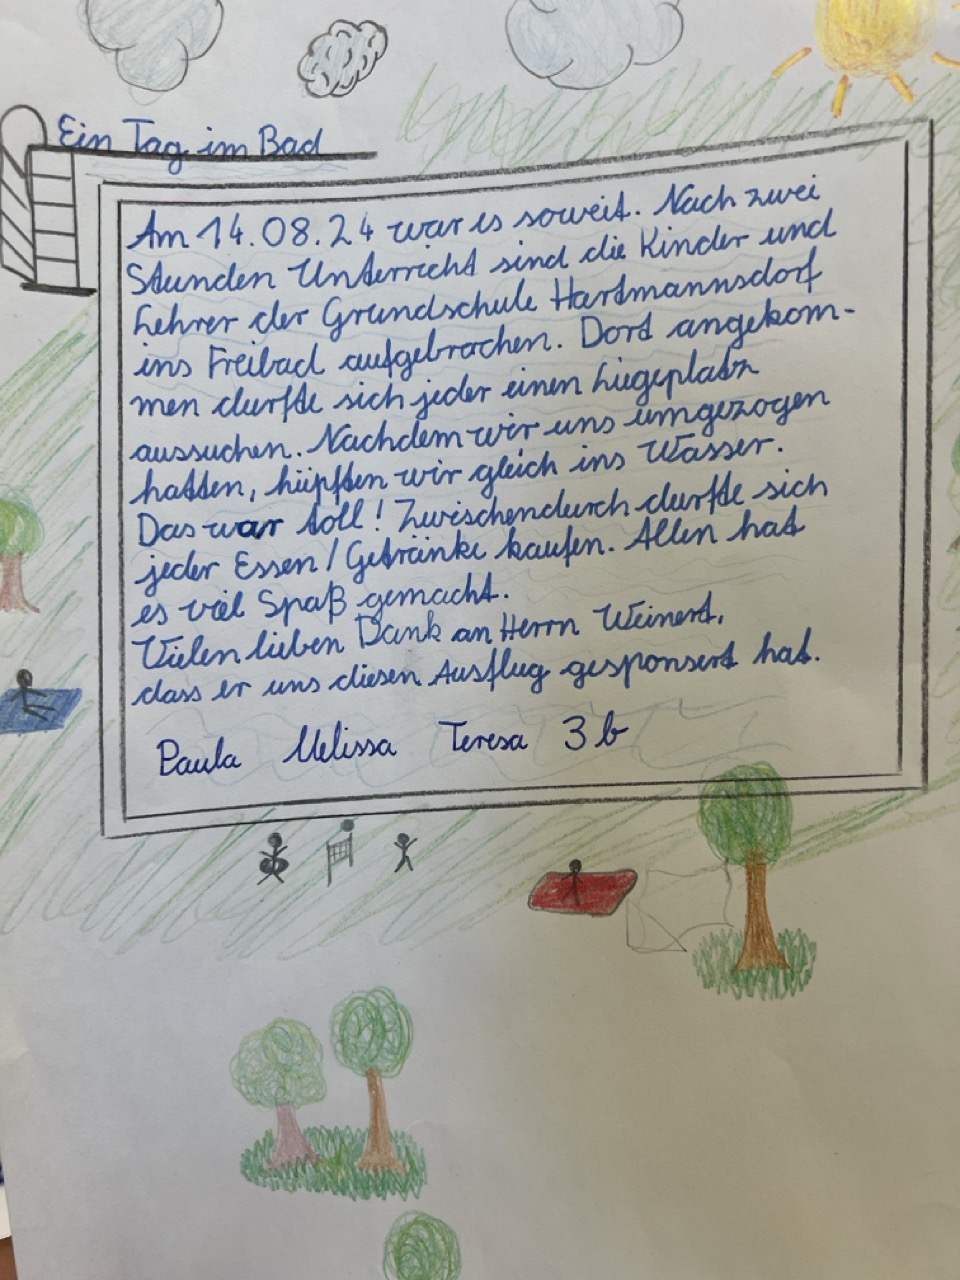 Ein Tag im Bad
Am 14.08.24 war es soweit. Nach zwei
Stunden Unterricht sind die Kinder und
Lehrer der Grundschule Hartmannsdorf
ins Freibad aufgebrochen. Dort angekom-
men durfte sich jeder einen Liegeplatz
aussuchen. Nachdem wir uns umgezogen
hatten, hüpften wir gleich ins Wasser.
Das war toll! Zwischendurch durfte sich
jeder Essen/Getränke kaufen. Allen hat
es viel Spaß gemacht.
Vielen lieben Dank an Herrn Weinert,
dass er uns diesen Ausflug gesponsert hat.
Paula Melissa Teresa 3b